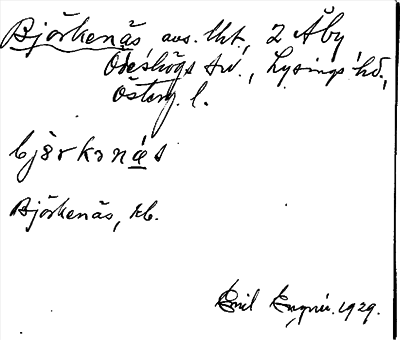 Björkenäs avs. lht, 2 Åby,
Ödeshögs sn., Lysings hd.,
Österg. l.
bjɜrkɜnás
Björkenäs, kb.
Emil Engnér. 1929.